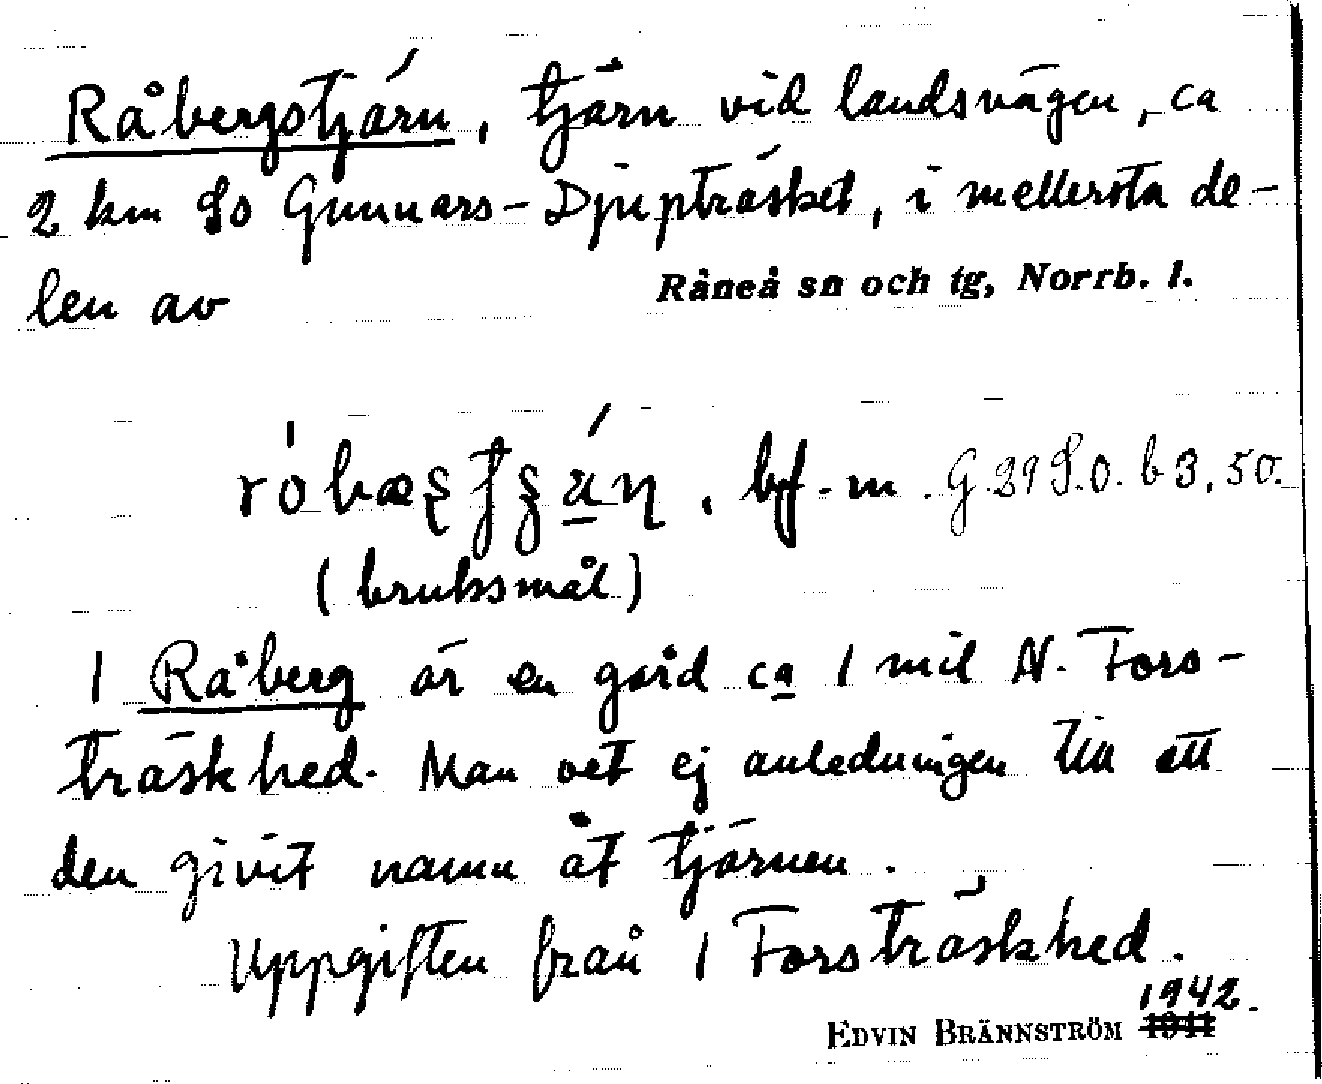 Råbergstjärn, tjärn vid landsvägen, ca
2 km So Gunnars-Djupträsket, i mellersta de-
len av Råneå sn och tg, Norrb. l.
bf. m. G.29 S.O. b 3,50.
(bruksmål)
1 Råberg är en gård ca 1 mil N. Fors-
träskhed. Man vet ej anledningen till att
den givit namn åt tjärnen.
Uppgiften från 1 Forsträskhed.
1942.
EDVIN BRÄNNSTRÖM 1941